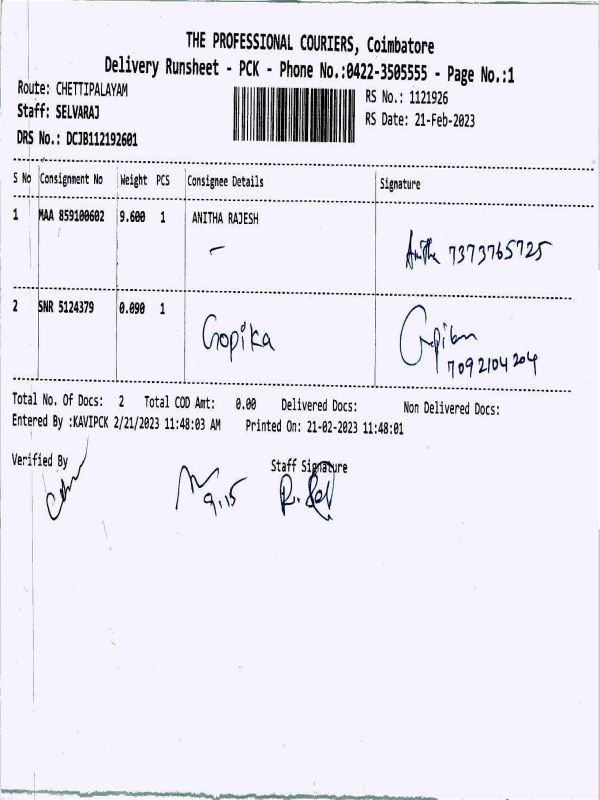 THE PROFESSIONAL COURIERS, Coimbatore
Delivery Runsheet - PCK - Phone No.:0422-3505555 - Page No.:1
Route: CHETTIPALAYAM
RS No.: 1121926
Staff: SELVARAJ
RS Date: 21-Feb-2023
DRS No.: DCJB112192601
S No Consignment No Weight PCS Consignee Details Signature
1 MAA 859100602 9.600 1 ANITHA RAJESH
Anitha 7373765725
2 SNR 5124379 0.090 1
Gopika
7092104204
Total No. Of Docs: 2 Total COD Amt: 0.00 Delivered Docs: Non Delivered Docs:
Entered By :KAVIPCK 2/21/2023 11:48:03 AM Printed On: 21-02-2023 11:48:01
Verified By Staff Signature
9.15